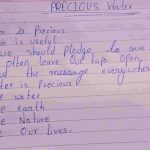 PRECIOUS Water
is Precious
is useful
we should Pledge to save
often leave our taps open
the message everywhere
is Precious
water
earth
Nature
Our lives.